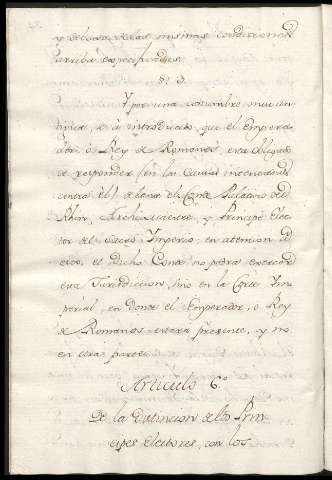 y de las mismas condiciones
arriba especificadas
§ 3.
Y por una costumbre mui an
tigua, se à introducido, que el Empera
dor, o Rey de Romanos, este obligado
de responder (en las Causas intentadas
contra el) delante el Conde Palatino del
Rhin, Archi y Principe Elec
tor del Sacro Imperio, en attencion de
esto, el dicho Conde no podrá exercer
esta Jurisdiccion, sino en la Corte Im
perial, en donde el Emperador, o Rey
de Romanos estará presente, y no
en otra parte.
Articulo 6.º
De la Distincion de los Prin
cipes electores, con los